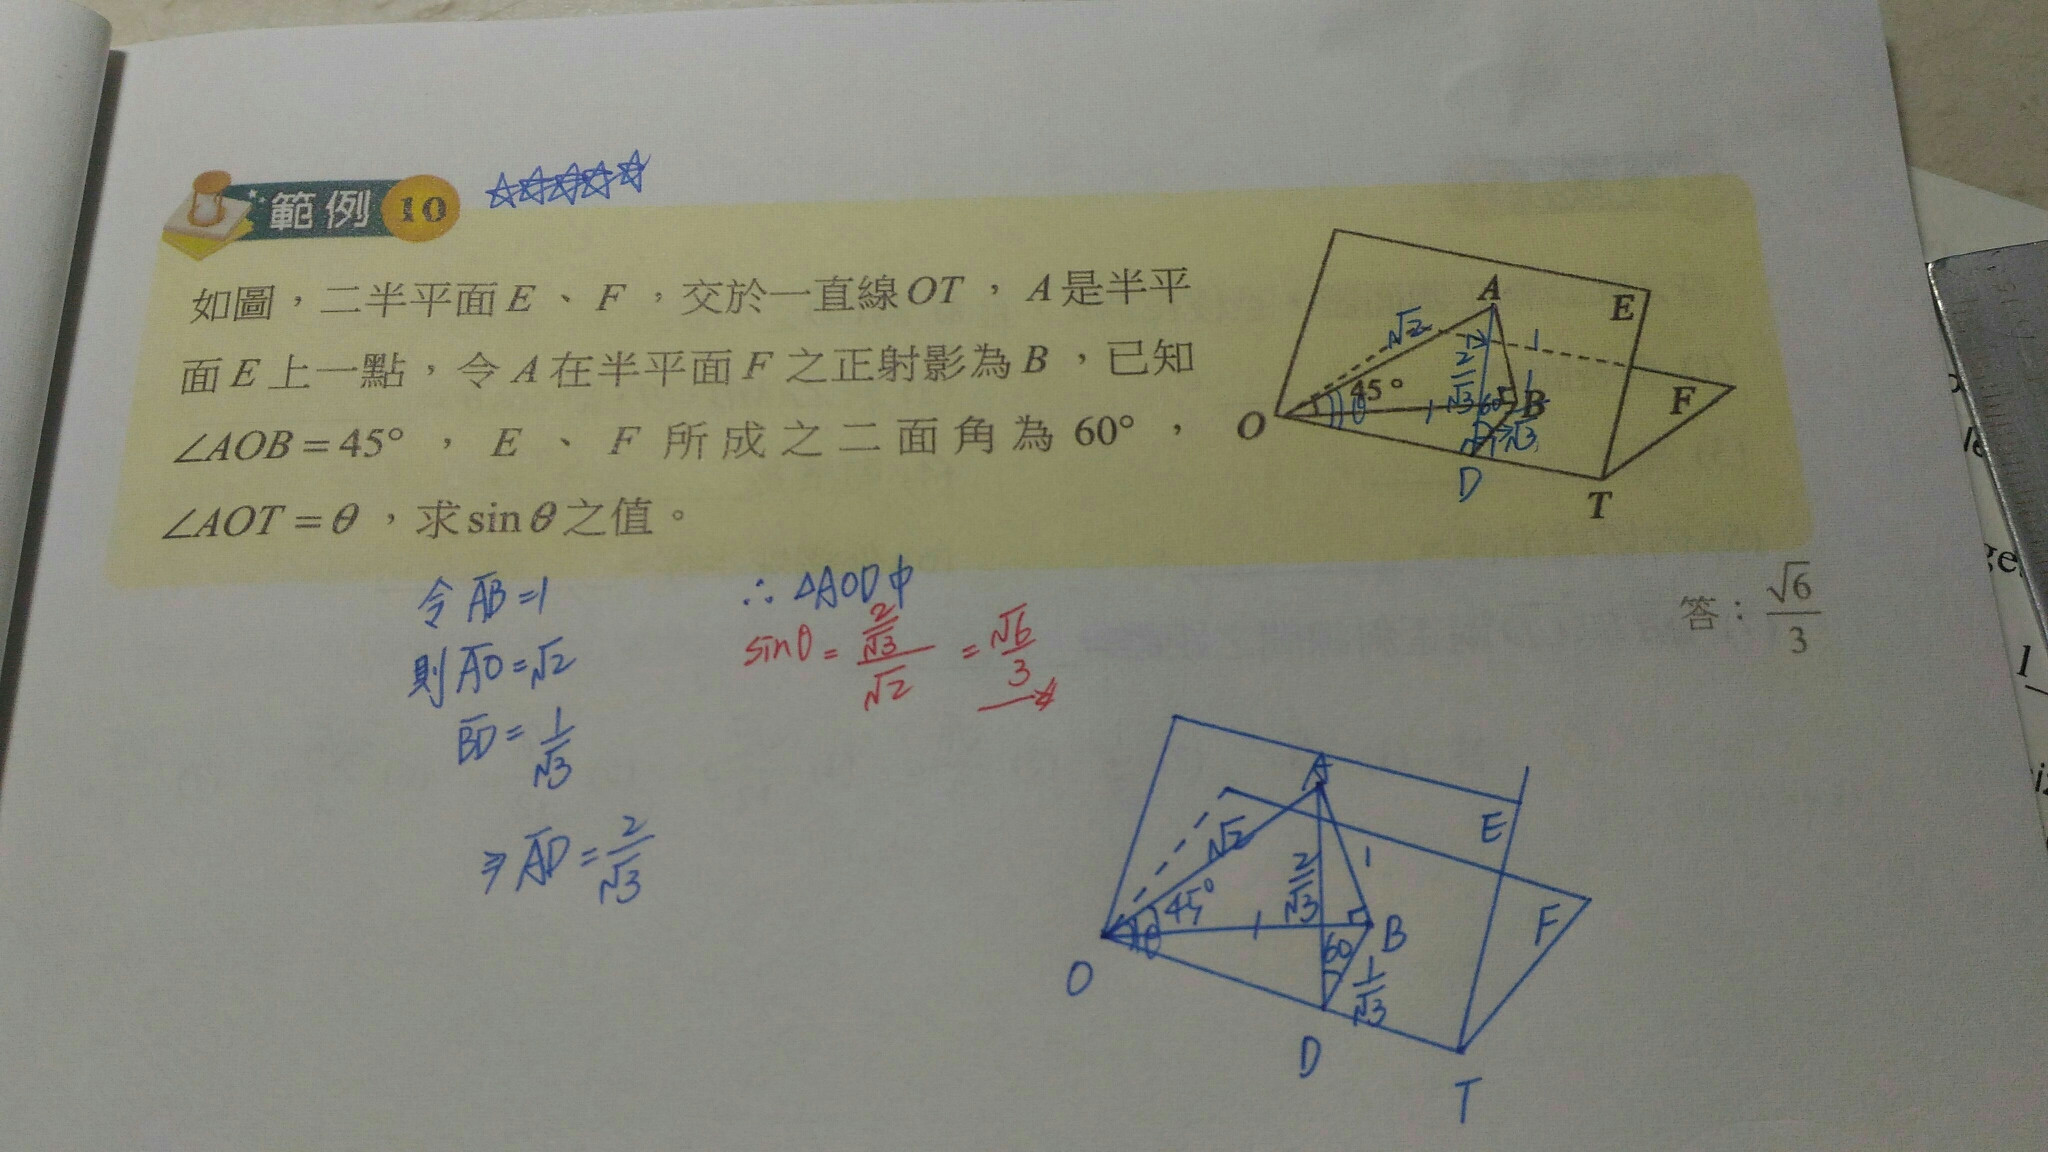 範例 10 ☆☆☆☆☆
如圖,二半平面 E、F,交於一直線 OT,A 是半平
面 E 上一點,令 A 在半平面 F 之正射影為 B,已知
∠AOB = 45°,E、F 所成之二面角為 60°,
∠AOT = θ,求 sin θ 之值。
A
E
√2
1
2/√3
45°
θ
1
60
B
F
O
1/√3
D
T
答:√6/3
令 AB = 1
則 AO = √2
BD = 1/√3
⇒ AD = 2/√3
∴ △AOD中
sinθ = (2/√3)/√2 = √6/3
A
E
√2
2/√3
1
45°
θ
1
B
F
60
1/√3
O
D
T